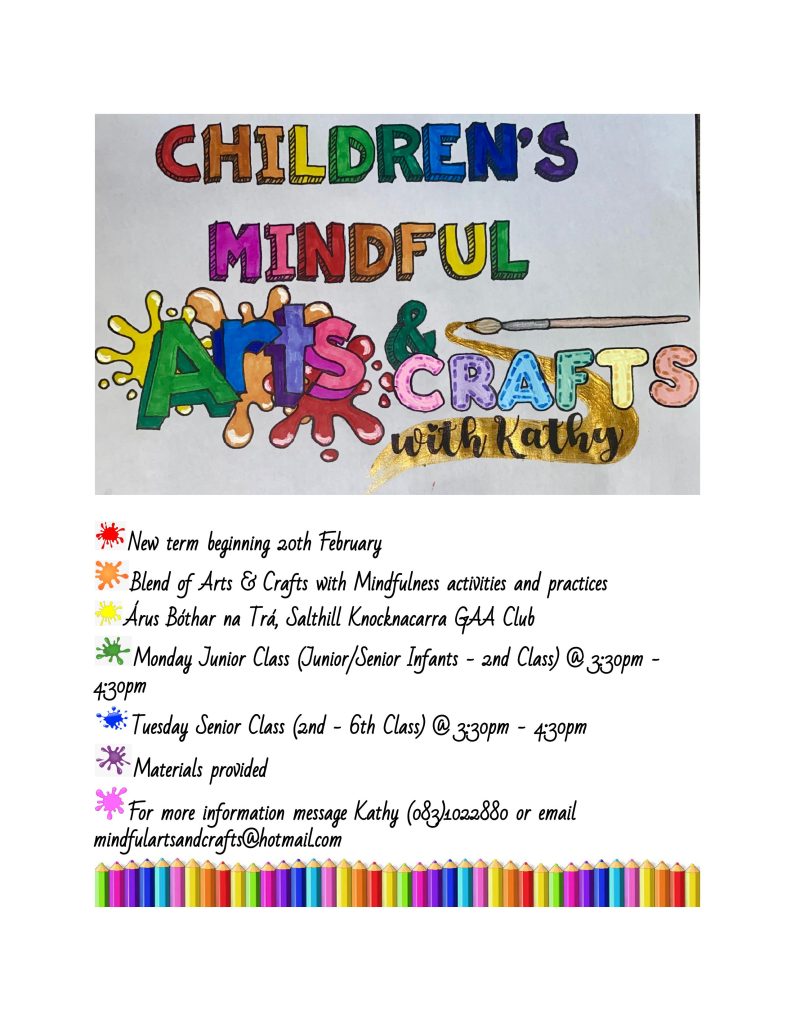 CHILDREN'S
MINDFUL
Arts & CRAFTS
with Kathy
New term beginning 20th February
Blend of Arts & Crafts with Mindfulness activities and practices
Árus Bóthar na Trá, Salthill Knocknacarra GAA Club
Monday Junior Class (Junior/Senior Infants - 2nd Class) @ 3:30pm -
4:30pm
Tuesday Senior Class (2nd - 6th Class) @ 3:30pm - 4:30pm
Materials provided
For more information message Kathy (083)1022880 or email
mindfulartsandcrafts@hotmail.com